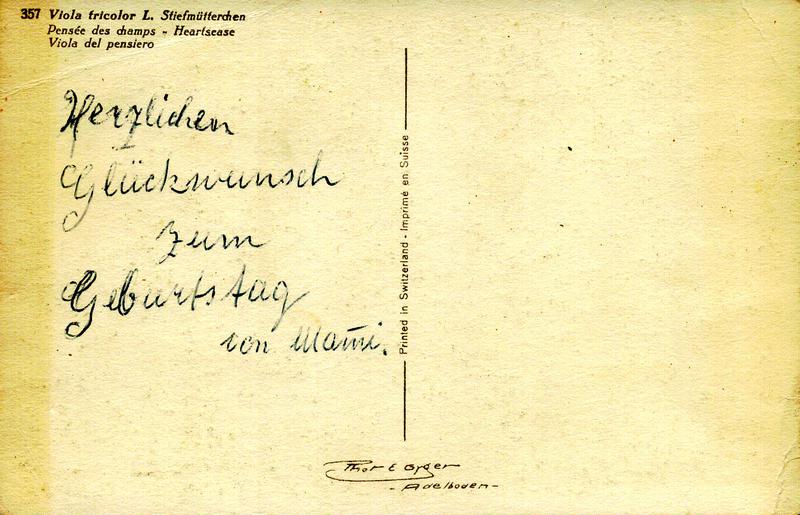 357 Viola tricolor L. Stiefmütterchen
Pensée des champs - Heartsease
Viola del pensiero
Herzlichen
Glückwunsch
zum
Geburtstag
von Mami.
Printed in Switzerland - Imprimé en Suisse
Thor E Gyger
- Adelboden -